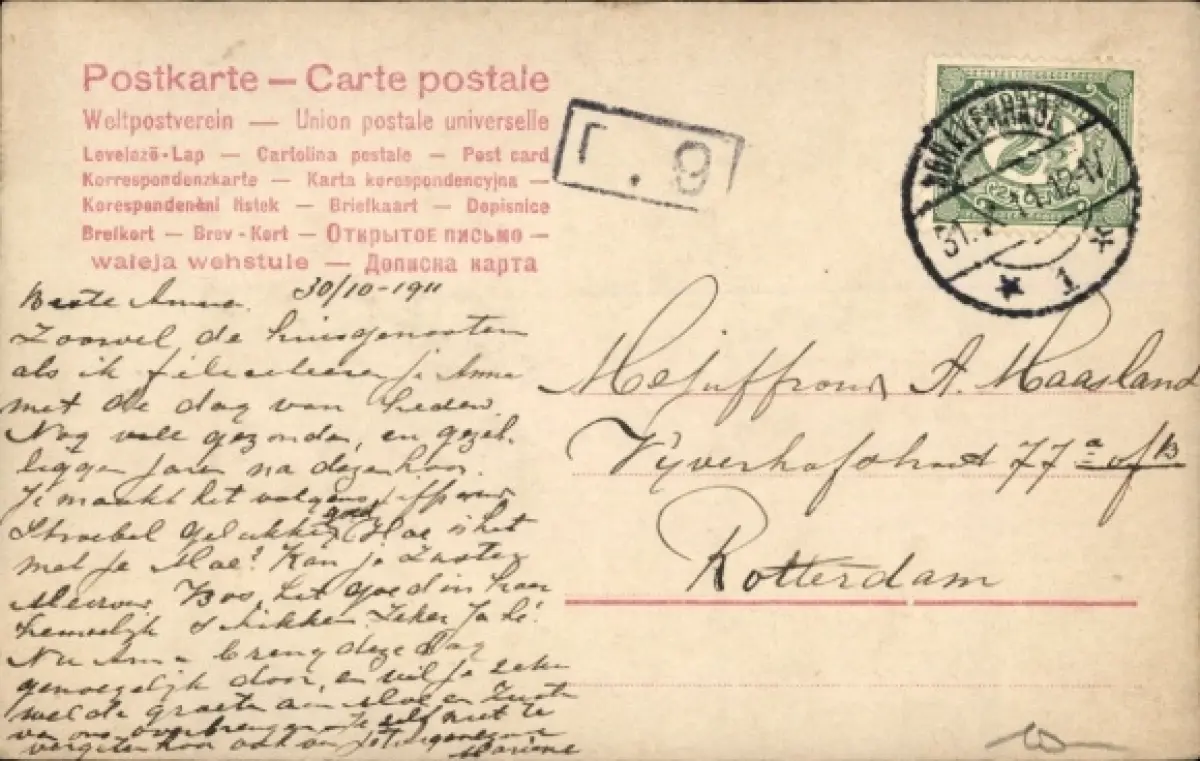 Postkarte — Carte postale
Weltpostverein — Union postale universelle
Levelező-Lap — Cartolina postale — Post card
Korrespondenzkarte — Karta korespondencyjna —
Korespondenční lístek — Briefkaart — Dopisnice
Brefkort — Brev-Kort — Открытое письмо —
waleja wehstule — Дописна карта
T. 9
'SGRAVENHAGE
31. 12-1V
1
Beste Anna. 30/10-1911
Zoowel de huisgenooten
als ik feliciteeren je Anna
met de dag van heden.
Nog vele gezonde, en geze-
ligge jaren na dezen hoor.
Je maakt het volgens Juffrouw
Stroebel gelukkig goed. Hoe is het
met je Moe? Kan je Zuster
Mevrouw Bos, het goed in haar
schikken. Zeker Ja hè!
Nu Anna breng deze dag
genoegelijk door, en wil je zeker
wel de groeten aan Moe en Zuster
van ons overbrengen niet te
vergeten hoor ook
Mejuffrouw A. Maasland
Vijverhofstraat 77 a of b
Rotterdam